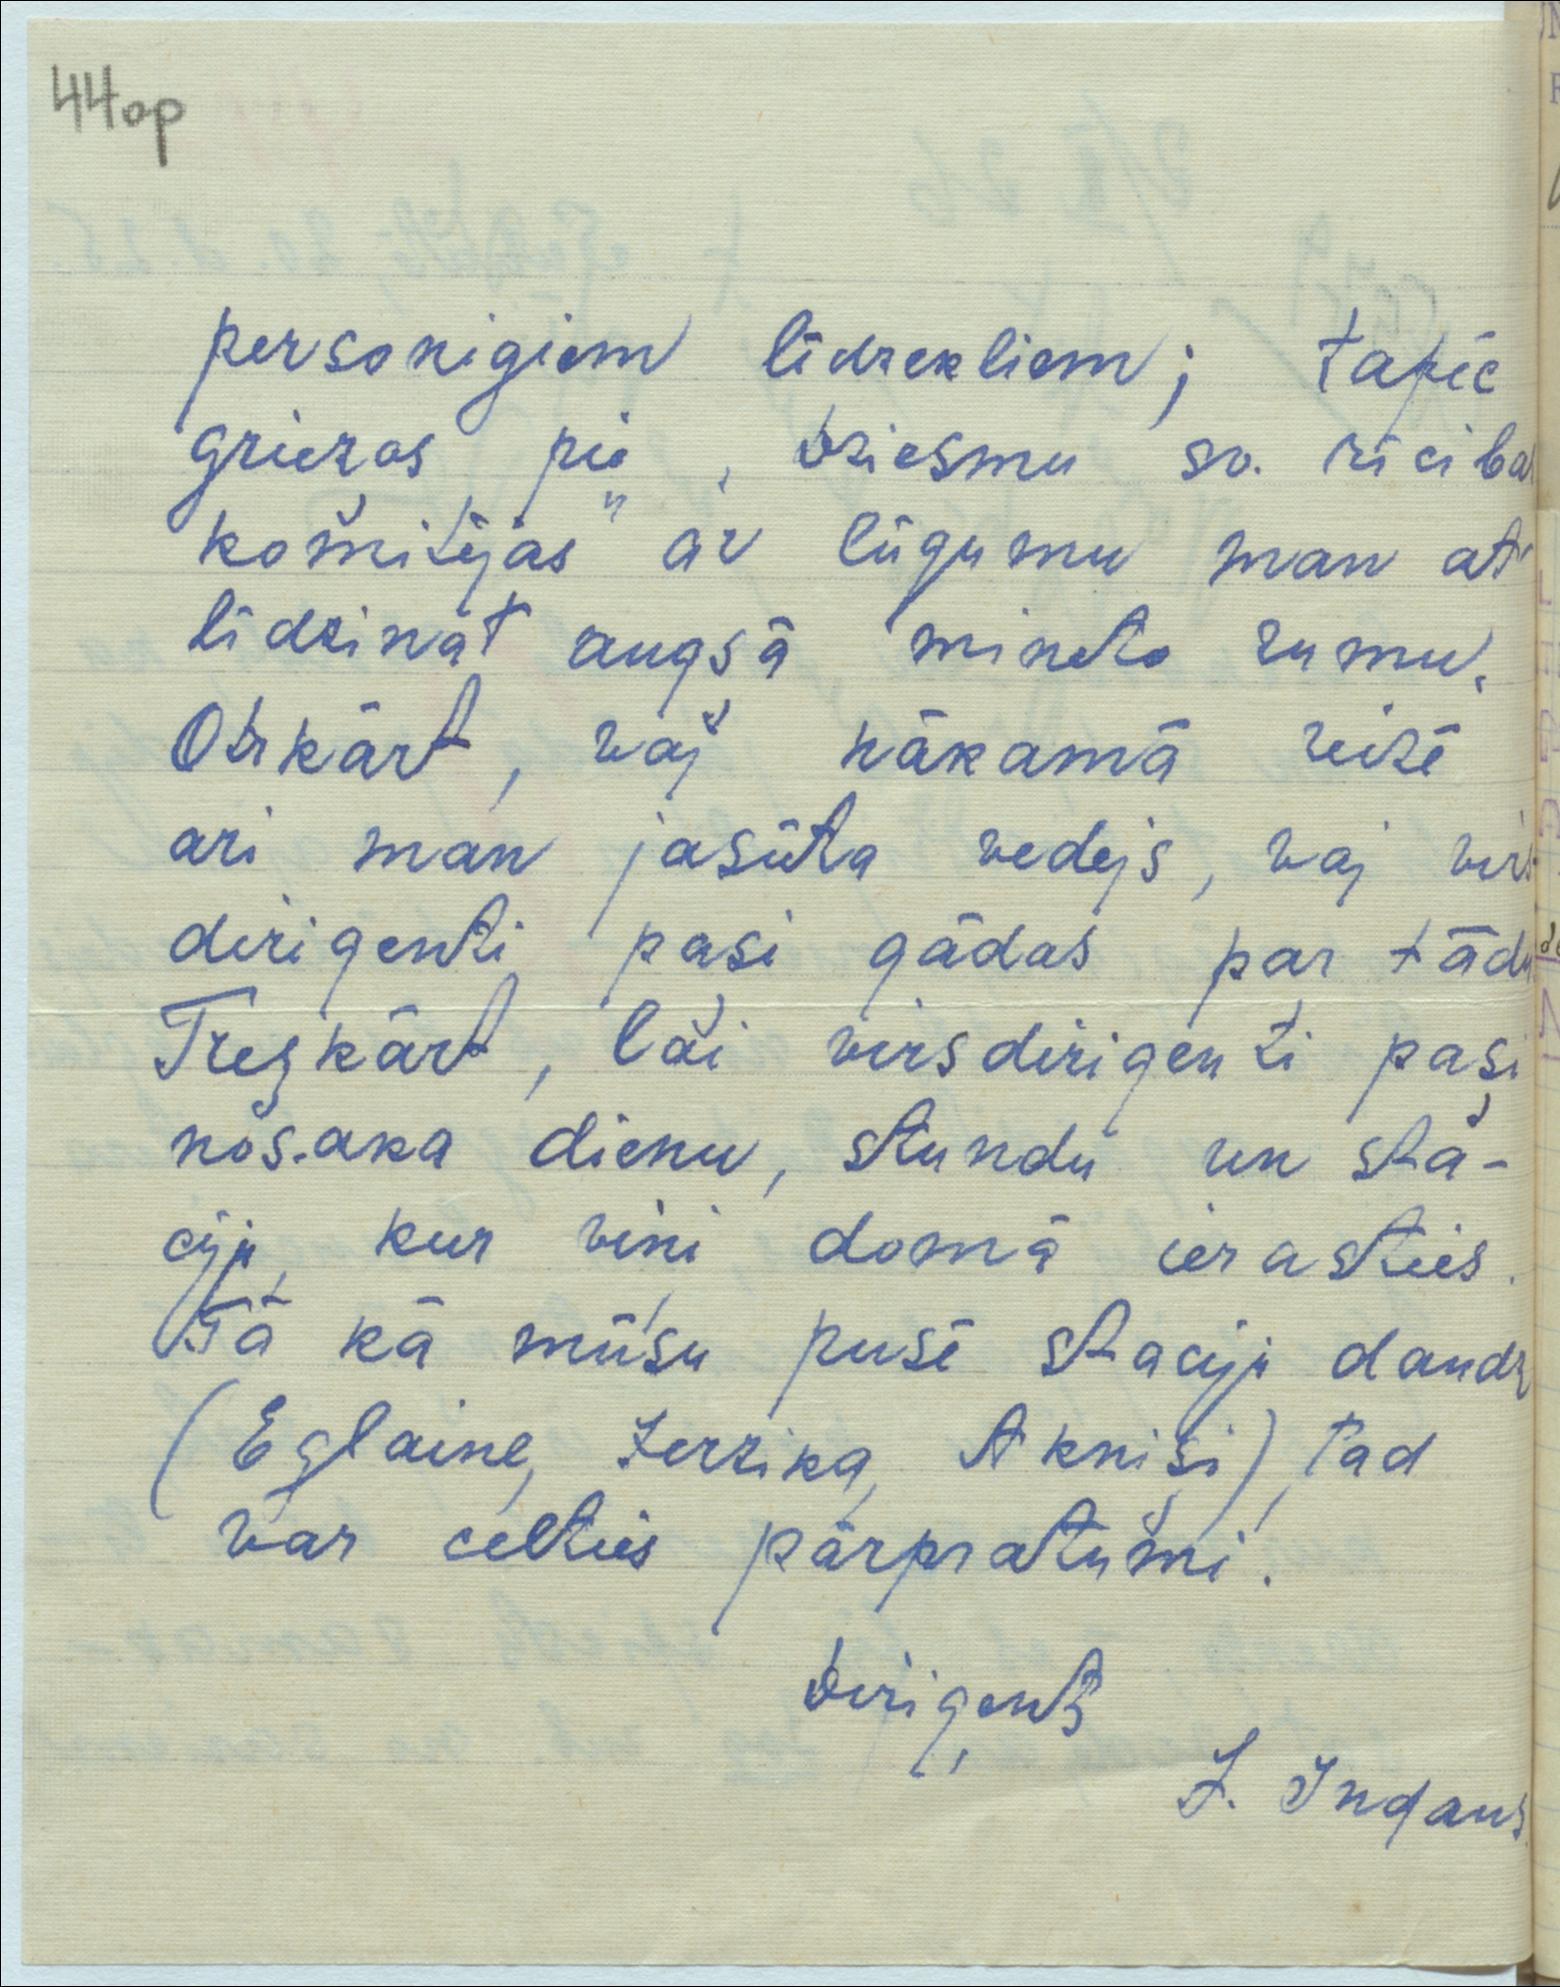 44op
personigiem līdzekliem; tapēc
griezos pie „Dziesmu sv. rīcības
komitejas" ar lūgumu man at-
līdzināt augšā mineto sumu.
Otrkārt, vaj nākamā reizē
ari man jasūta vedejs, vaj virs-
dirigenti paši gādās par tādu
Treškārt, lai virsdirigenti paši
nosaka dienu, stundu un sta-
ciju, kur viņi domā ierasties.
Tā kā mūsu pusē staciju daudz
(Eglaine, Jerzika, Akniši), tad
var celties pārpratumi.
Diriģents
J. Indans